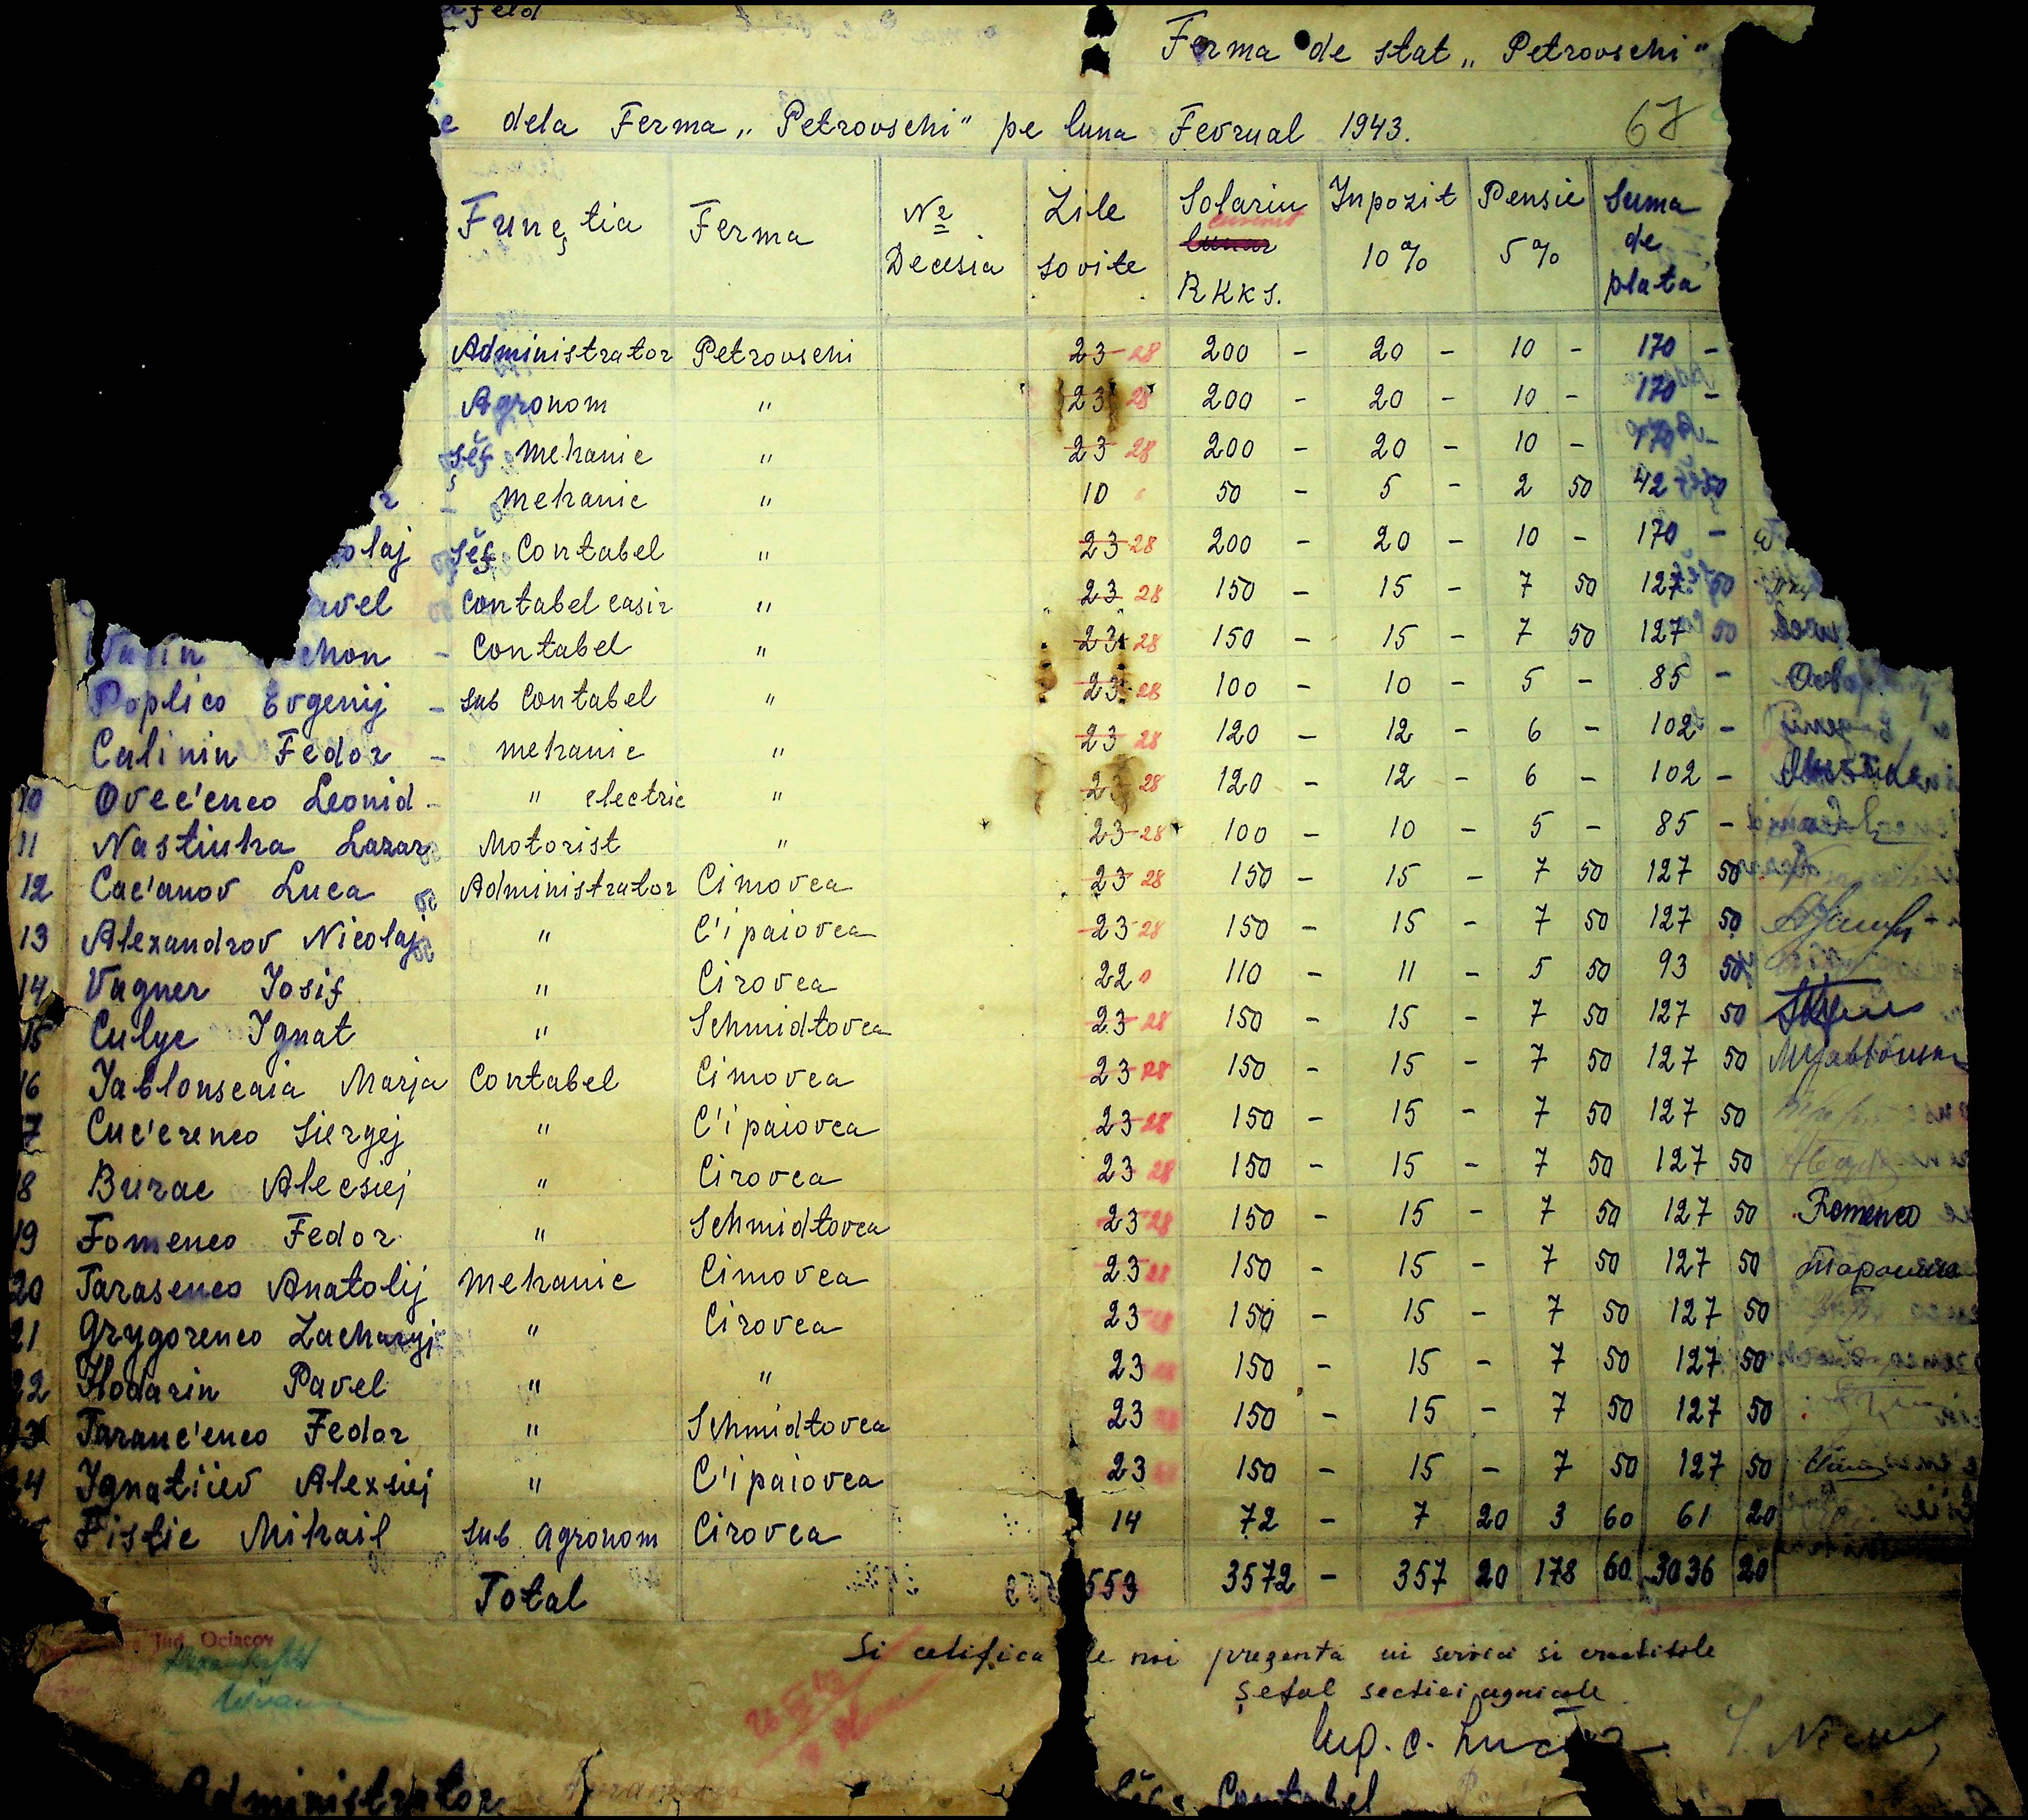 Ferma de stat „Petrovschi"
dela Ferma „Petrovschi" pe luna Fevrual 1943. 67
Funcția Ferma № Decisia Zile sovite Solariu curent lunar RKKS. Inpozit 10% Pensie 5% Suma de plata
Administrator Petrovschi 23 28 200 - 20 - 10 - 170 -
Agronom " 23 28 200 - 20 - 10 - 170 -
șef mehanic " 23 28 200 - 20 - 10 - 170 -
mehanic " 10 50 - 5 - 2 50 42 50
olaj șef Contabel " 23 28 200 - 20 - 10 - 170 -
avel Contabel casir " 23 28 150 - 15 - 7 50 127 50
chon - Contabel " 23 28 150 - 15 - 7 50 127 50
Poplico Evgenij - sub Contabel " 23 28 100 - 10 - 5 - 85 -
Calinin Fedor - mehanic " 23 28 120 - 12 - 6 - 102 -
10 Ovec'enco Leonid - " electric " 23 28 120 - 12 - 6 - 102 -
11 Nastiuha Lazar Motorist " 23 28 100 - 10 - 5 - 85 -
12 Cac'anov Luca Administrator Cimovca 23 28 150 - 15 - 7 50 127 50
13 Alexandrov Nicolaj " C'ipaiovca 23 28 150 - 15 - 7 50 127 50
14 Vagner Iosif " Cirovca 22 110 - 11 - 5 50 93 50
15 Culyc Ignat " Schmidtovca 23 28 150 - 15 - 7 50 127 50
16 Iablonscaia Marja Contabel Cimovca 23 28 150 - 15 - 7 50 127 50
7 Cuc'erenco Siergej " C'ipaiovca 23 28 150 - 15 - 7 50 127 50
8 Burac Alecsiej " Cirovca 23 28 150 - 15 - 7 50 127 50
19 Fomenco Fedor " Schmidtovca 23 28 150 - 15 - 7 50 127 50 Fomenco
20 Tarasenco Anatolij mehanic Cimovca 23 28 150 - 15 - 7 50 127 50
21 Grygorenco Zacharyj " Cirovca 23 28 150 - 15 - 7 50 127 50
22 Hodarin Pavel " " 23 28 150 - 15 - 7 50 127 50
23 Taranc'enco Fedor " Schmidtovca 23 28 150 - 15 - 7 50 127 50
24 Ignatiiev Alexsiej " C'ipaiovca 23 28 150 - 15 - 7 50 127 50
Fistic Mihail sub agronom Cirovca 14 72 - 7 20 3 60 61 20
Total 553 3572 - 357 20 178 60 3036 20
Jud. Ociacov
Si cetifica de noi prezenta in servici si
șeful sectiei agricole
Administrator
Șef Contabel